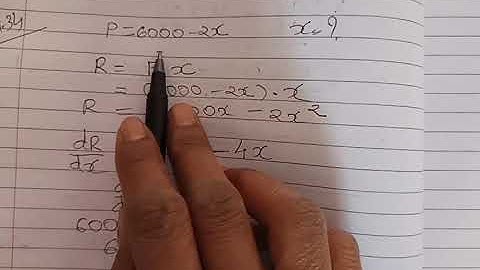 .34
P = 6000 - 2x x = ?
R = P x
= 000 - 2x) · x
R = 00x - 2x²
dR/dx - 4x
600
6